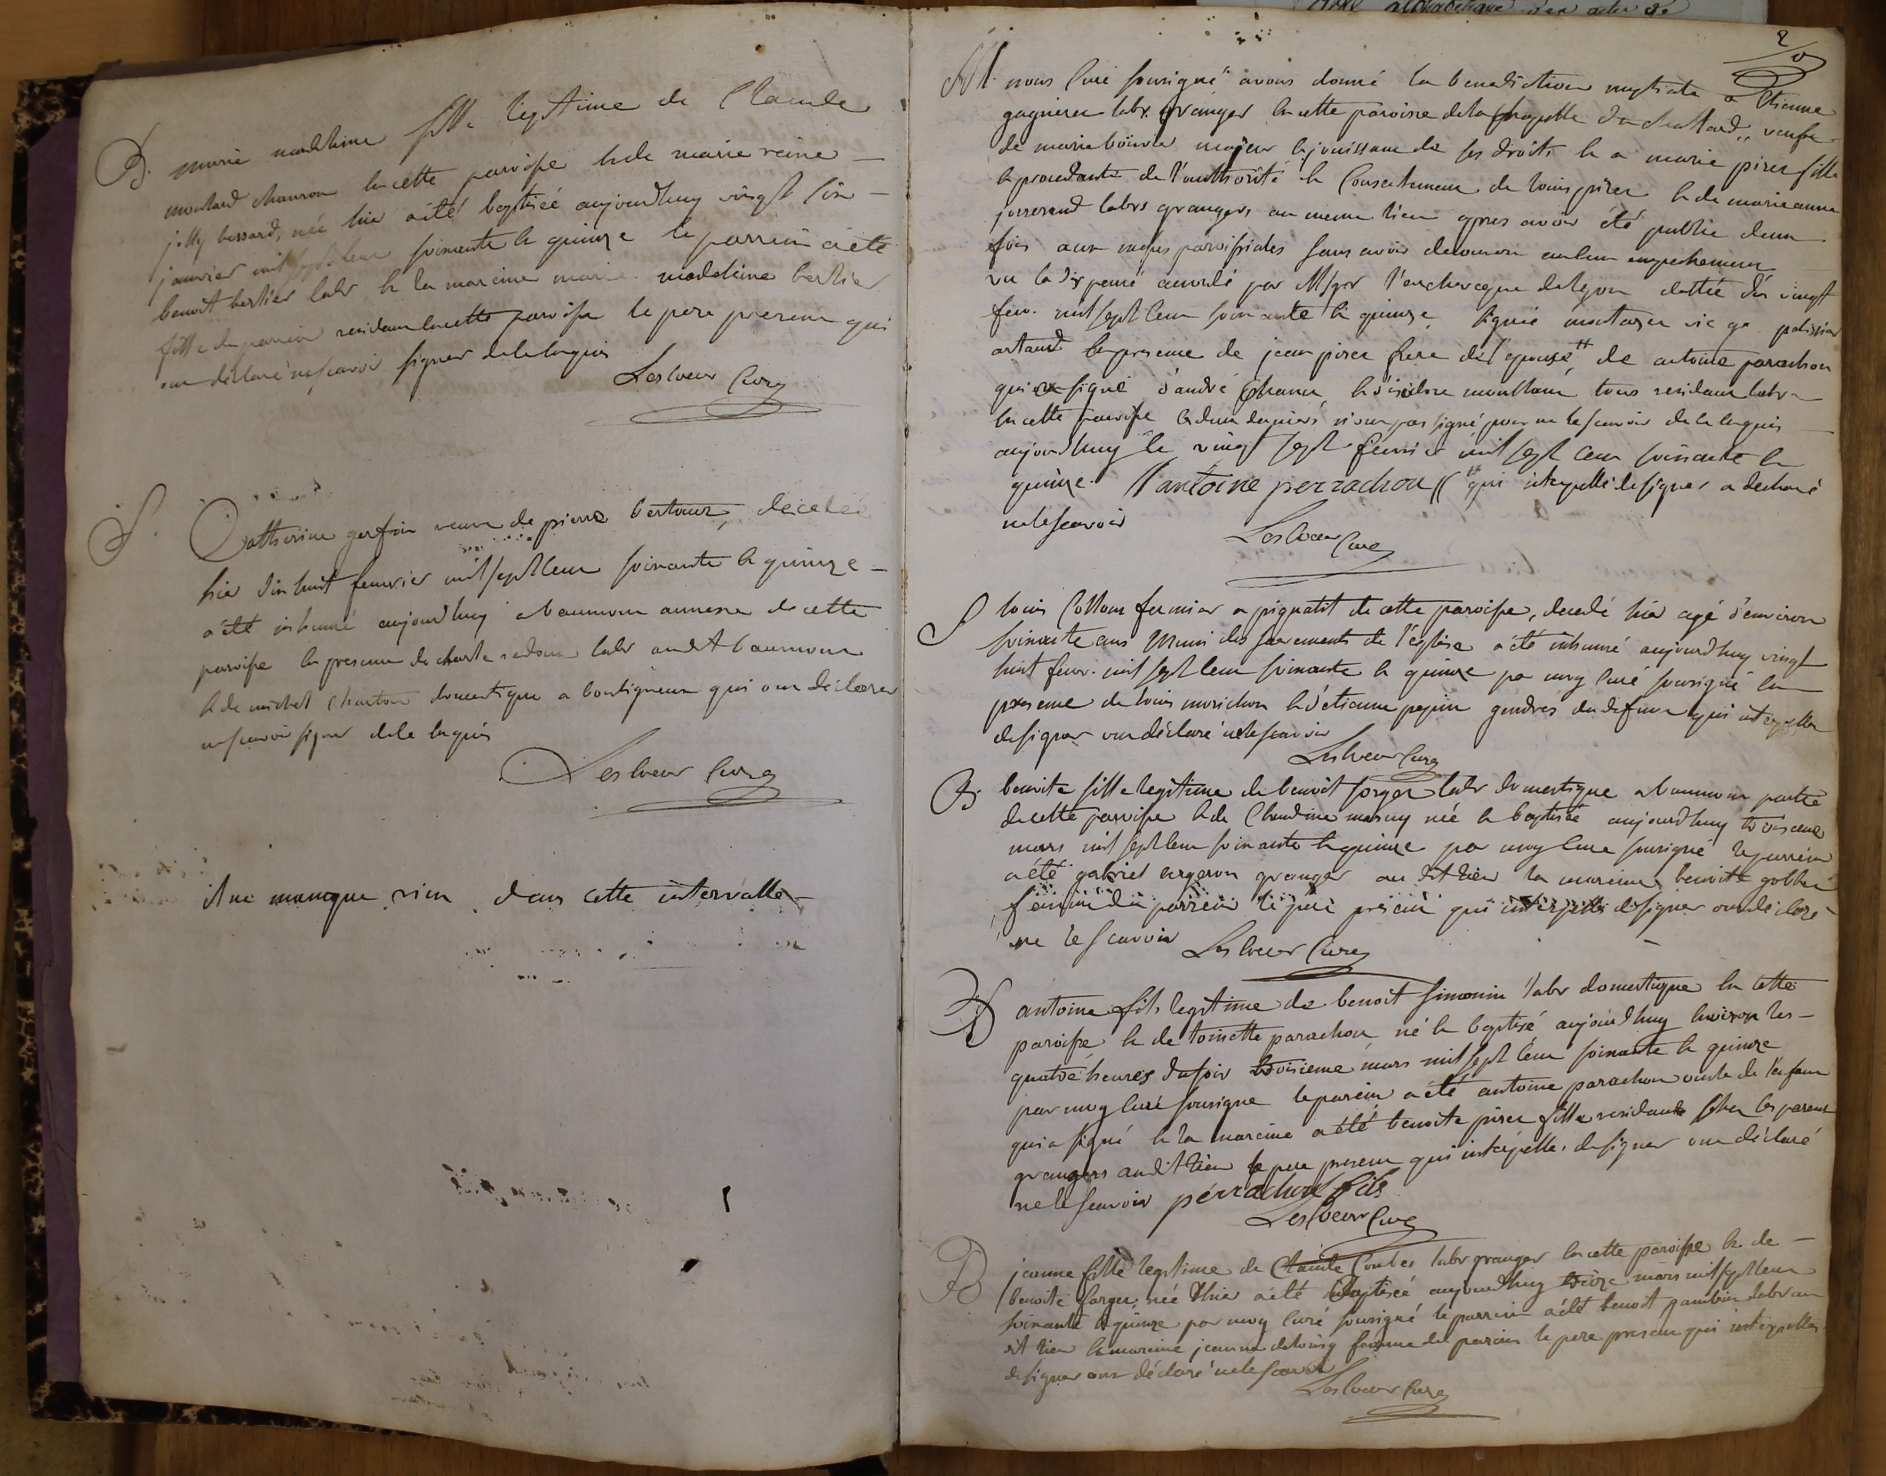 B. marie madeleine fille legitime de Claude
montard charron en cette paroisse et de marie reine
jolly bessard, née hier a été baptisée aujourdhuy vingt six
janvier mil sept cent soixante et quinze le parrein a été
benoit bertier labr et la marreine marie madeleine bertier
fille du parrein residant en cette paroisse le pere present qui
ont declaré ne scavoir signer de ce enquis
Lesboeur Curé
S. Catherine gerfin veuve de pierre bertoux, decedée
hier dix huit fevrier mil sept cent soixante et quinze
a été inhumé aujourdhuy a baumont annexe de cette
paroisse en presence de charle labr audit baumont
et de michel Charton domestique a boutigneux qui ont declarer
ne scavoir signer de ce enquis
Lesboeur Curé
il ne manque rien dans cette intervalle
2
M. nous Curé soussigné avons donné la benediction nuptiale a Etienne
gagnieur labr. granger en cette paroisse de la chapelle du chatlard, veufve
de marie boivin majeur et jouissant de ses droits et a marie pirer fille
et procedante de l'authorité et Consentement de louis pirer et de marie anne
josserand labrs grangers au meme lieu apres avoir été publié deux
fois aux messes paroissiales sans avoir decouvert aucun empechement
vu la dispense accordé par Msgr l'archeveque de lyon dattée du vingt
fevr. mil sept cent soixante et quinze, signé vic ge.
artaud en presence de jean pirer frere de l'epouse # de antoine parachon
qui a signé d'andré et d'isidore tous residant labr
en cette paroisse et deux derniers n'ont pas signé pour ne le scavoir de ce enquis
aujourdhuy le vingt sept fevrier mil sept cent soixante et
quinze. // antoine perrachon // # qui interpellé de signer a declaré
ne le scavoir
Lesboeur Curé
S louis Cottout fermier a pignatit de cette paroisse, decedé hier agé d'environ
soixante ans muni des sacrements de l'église a été inhumé aujourdhuy vingt
huit fevr. mil sept cent soixante et quinze par moy curé soussigné en
presence de louis morichon et d'etienne pepin gendres du defunt qui interpellé
de signer ont déclaré ne le scavoir
Lesboeur Curé
B benoite fille legitime de benoit forger labr domestique a baumont partie
de cette paroisse et de Claudine masuy née et baptisée aujourdhuy troisieme
mars mil sept cent soixante et quinze par moy cure soussigné le parrein
a été gabriel vergeron granger au dit lieu la marreine benoite
femme du parrein le pere present qui interpellé de signer ont declaré
ne le scavoir
Lesboeur Curé
B antoine fils legitime de benoit simonin labr domestique en cette
paroisse et de toinette parachon né et baptisé aujourdhuy environ les
quatre heures du soir troisieme mars mil sept cent soixante et quinze
par moy curé soussigné le parein a été antoine parachon oncle de l'enfant
qui a signé et la mareine a été benoite pirer fille residante chez les parens
grangers audit lieu le pere present qui interpellé de signer ont déclaré
ne le scavoir perrachon fils
Lesboeur Curé
B jeanne fille legitime de Claude Contes labr granger en cette paroisse et de
benoite forger, née hier a été baptisée aujourdhuy treize mars mil sept cent
soixante et quinze par moy curé soussigné le parrein a été benoit pambin labr au
dit lieu la mareine jeanne femme du parein le pere present qui interpellés
de signer ont déclaré ne le scavoir
Lesboeur Curé